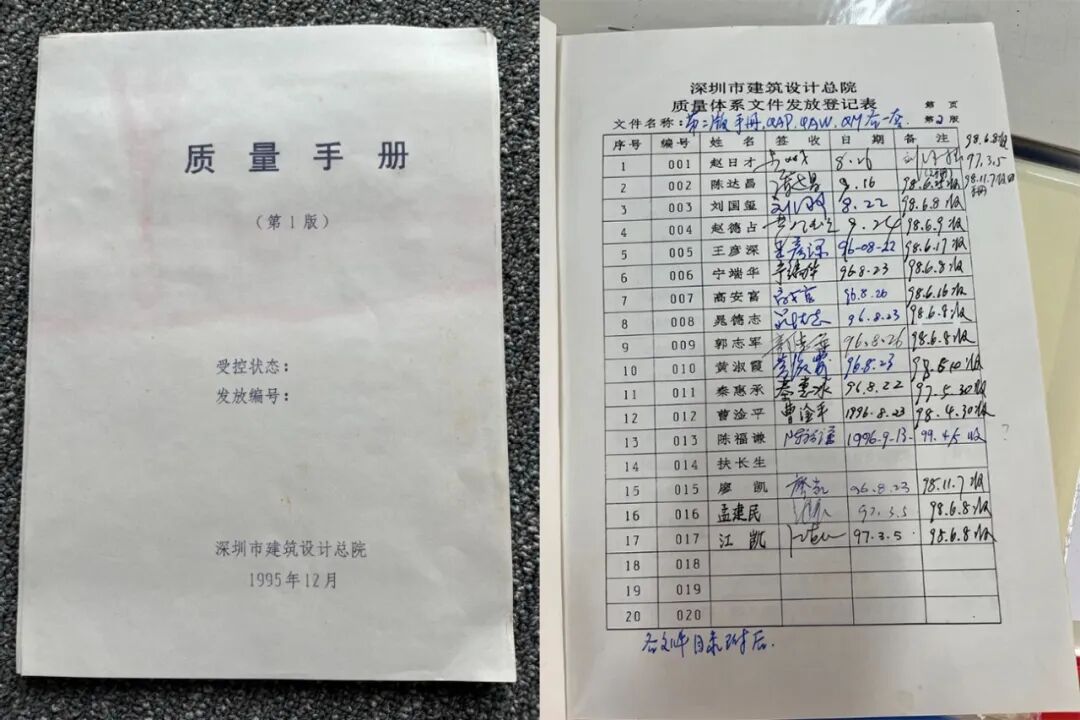 质量手册
（第1版）
受控状态：
发放编号：
深圳市建筑设计总院
1995年12月
深圳市建筑设计总院
质量体系文件发放登记表
第 页
文件名称：第二版手册、QAP、QAW、QM各一套
第2版
序号 编号 姓名 签收 日期 备注
98.6.8收
97.3.5
98.11.7收回
1 001 赵日才 8.26
2 002 陈达昌 9.16 98.6.25收
3 003 刘国玺 8.22 98.6.8收
4 004 赵德占 9.24 98.6.9收
5 005 王彦深 王彦深 96-08-22 98.6.17收
6 006 宁端华 宁端华 96.8.23 98.6.8收
7 007 高安富 高安富 96.8.26 98.6.16收
8 008 晁德志 晁德志 96.8.23 98.6.8收
9 009 郭志军 96.8.26 98.6.8收
10 010 黄淑霞 黄淑霞 96.8.23 98.6.10收
11 011 秦惠承 96.8.22 97.5.30收
12 012 曹淦平 曹淦平 1996.8.23 98.4.30收
13 013 陈福谦 陈福谦 1996.9.13. 99.4.5收
?
14 014 扶长生
15 015 廖凯 廖凯 96.8.23 98.11.7收
16 016 孟建民 97.3.5 98.6.8收
17 017 江凯 97.3.5. 98.6.8收
18 018
19 019
20 020
各文件目录附后.